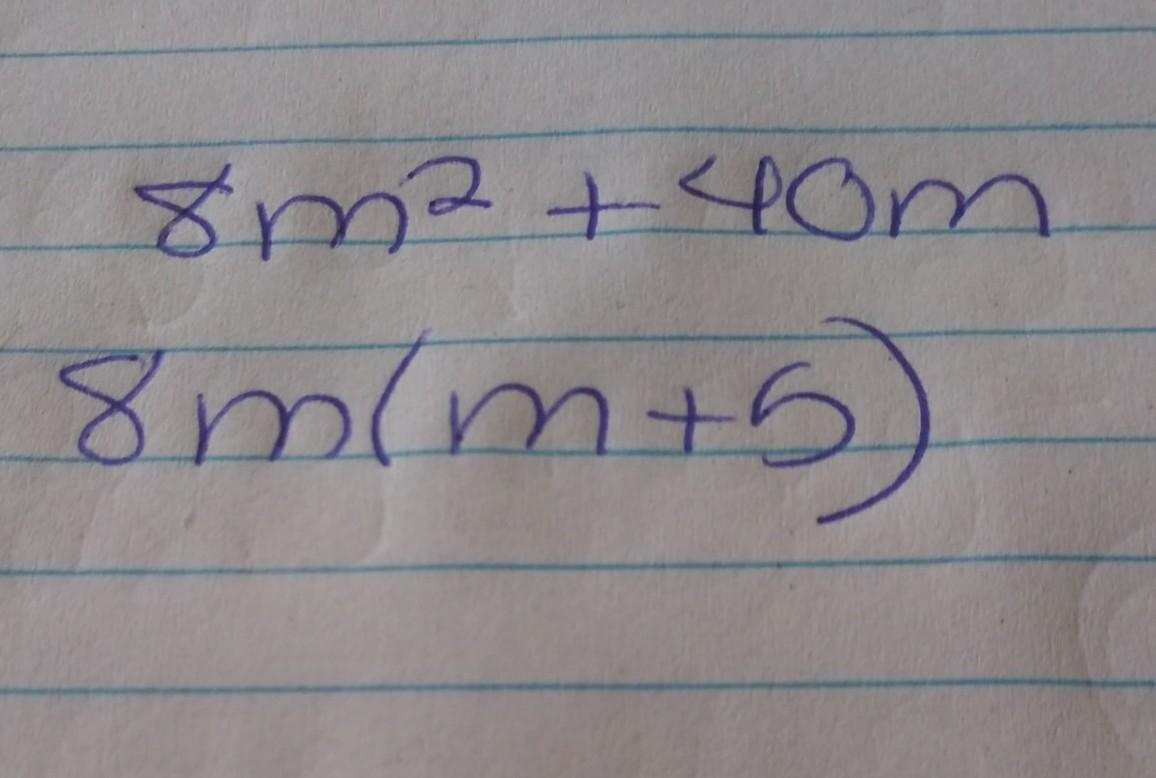 8m² + 40m
8m(m+5)